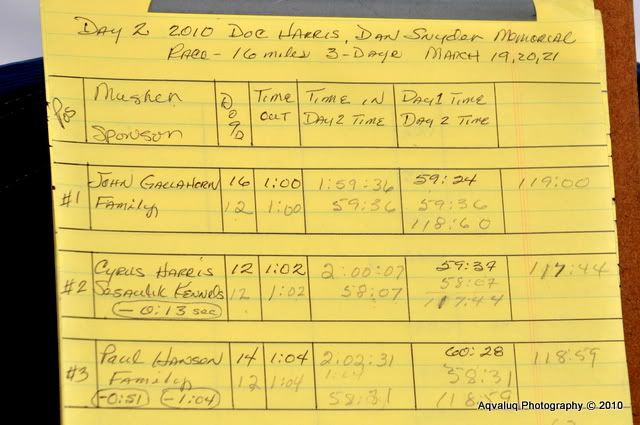 DAY 2 2010 DOC HARRIS, DAN SNYDER MEMORIAL
RACE - 16 miles 3-Days MARCH 19,20,21
Pos Musher DOGS TIME OUT TIME IN DAY 2 TIME DAY 1 TIME DAY 2 TIME
Sponsor
#1 JOHN GALLAHORN 16 1:00 1:59:36 59:24 119:00
Family 12 1:00 59:36 59:36
118:60
#2 CYRUS HARRIS 12 1:02 2:00:07 59:37 117:44
SASAULIK KENNELS 12 1:02 58:07 58:07
-0:13 sec 117:44
#3 PAUL HANSON 14 1:04 2:02:31 60:28 118:59
Family 12 1:04 1:04 58:31
-0:51 -1:04 58:31 118:59
Aqvaluq Photography © 2010